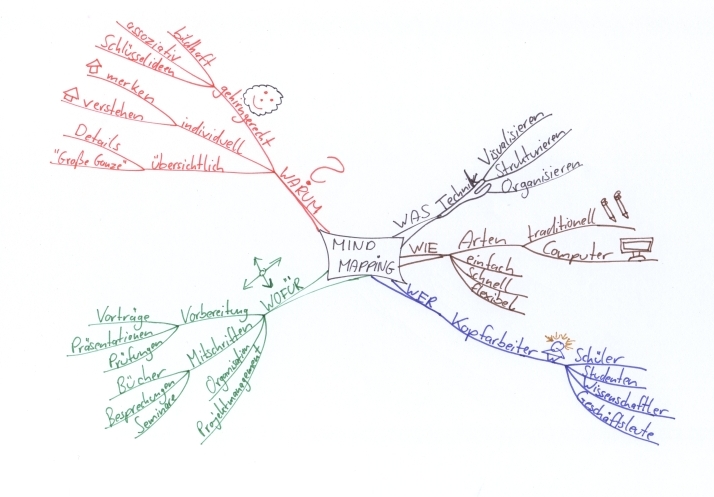 MIND
MAPPING
WARUM
?
gehirngerecht
bildhaft
assoziativ
Schlüsselideen
individuell
merken
verstehen
übersichtlich
Details
"Große Ganze"
WAS Technik
Visualisieren
Strukturieren
Organisieren
WIE
Arten
traditionell
Computer
einfach
schnell
flexibel
WER
Kopfarbeiter
Schüler
Studenten
Wissenschaftler
Geschäftsleute
WOFÜR
Vorbereitung
Vorträge
Präsentationen
Prüfungen
Mitschriften
Bücher
Besprechungen
Seminare
Organisation
Projektmanagement